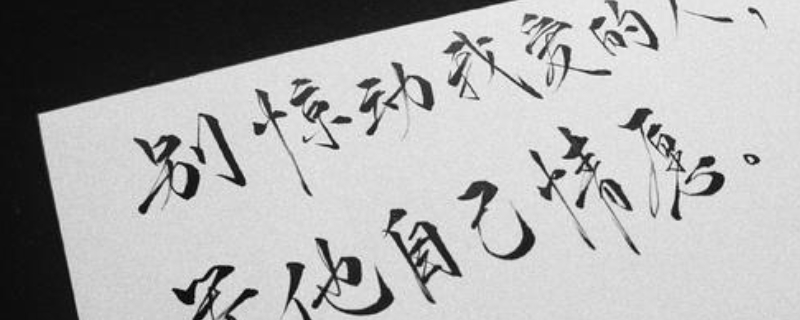 别惊动我爱的人，
等他自己情愿。